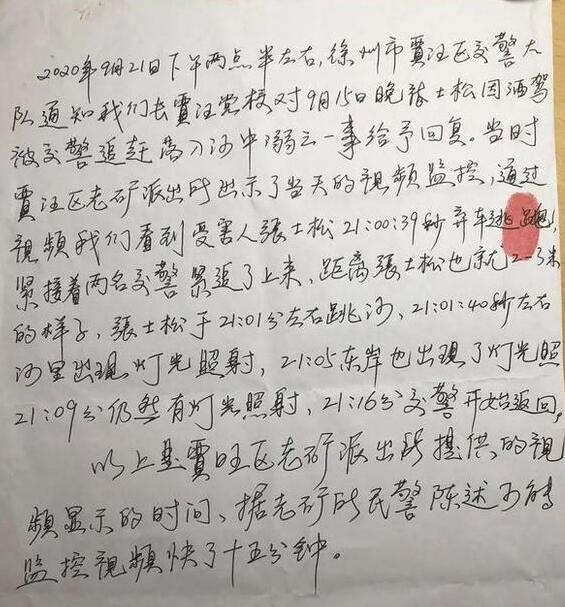 2020年9月21日下午两点半左右,徐州市賈汪区交警大
队通知我们去賈汪党校对9月15日晚張士松因酒驾
被交警追赶落入河中溺亡一事给予回复。当时
賈汪区老矿派出所出示了当天的視频监控,通过
視频我们看到受害人張士松21:00:39秒弃车逃跑,
紧接着两名交警紧追了上来,距离張士松也就2-3米
的样子,張士松于21:01分左右跳河,21:01:40秒左右
河里出現灯光照射,21:05东岸也出現了灯光照
21:09分仍然有灯光照射,21:16分交警开始返回,
以上是賈旺区老矿派出所提供的視
频显示的时间、据老矿所民警陈述
监控視频快了十五分钟。